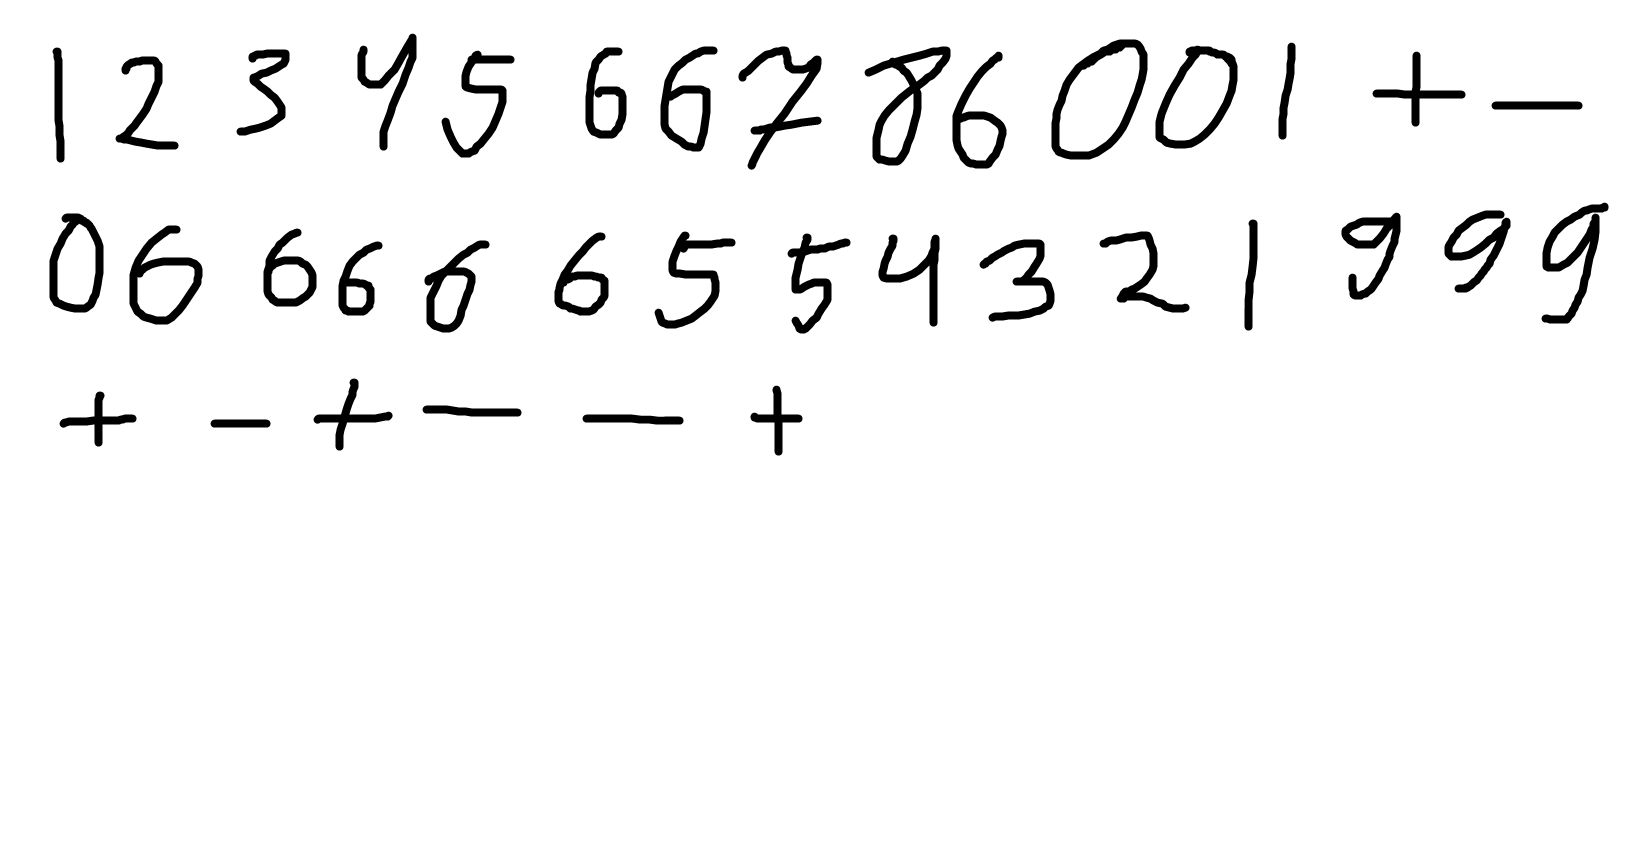 1 2 3 4 5 6 6 7 8 6 0 0 1 + -
0 6 6 6 6 6 5 5 4 3 2 1 9 9 9
+ - + - - +